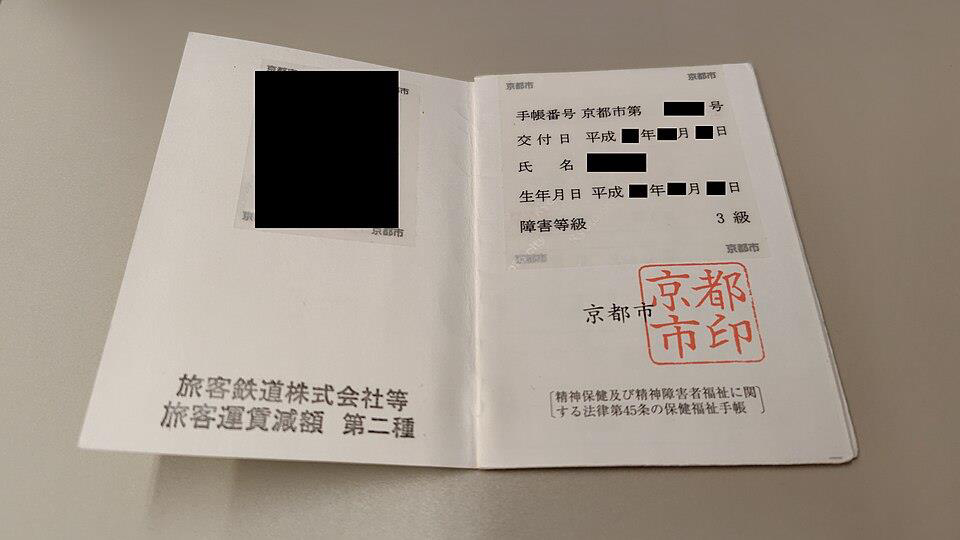 京都市
市
京都市
旅客鉄道株式会社等
旅客運賃減額 第二種
京都市 京都市
手帳番号 京都市第 号
交付日 平成 年 月 日
氏 名
生年月日 平成 年 月 日
障害等級 3 級
京都市 京都市
京都市
京都
市印
精神保健及び精神障害者福祉に関
する法律第45条の保健福祉手帳